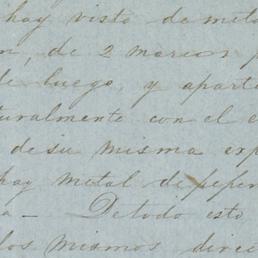 hay visto de meta
n, de 2 marcos p
de luego, y aparte
turalmente con el c
de su misma exp
hay metal de pepen
a — De todo esto
los mismos direc